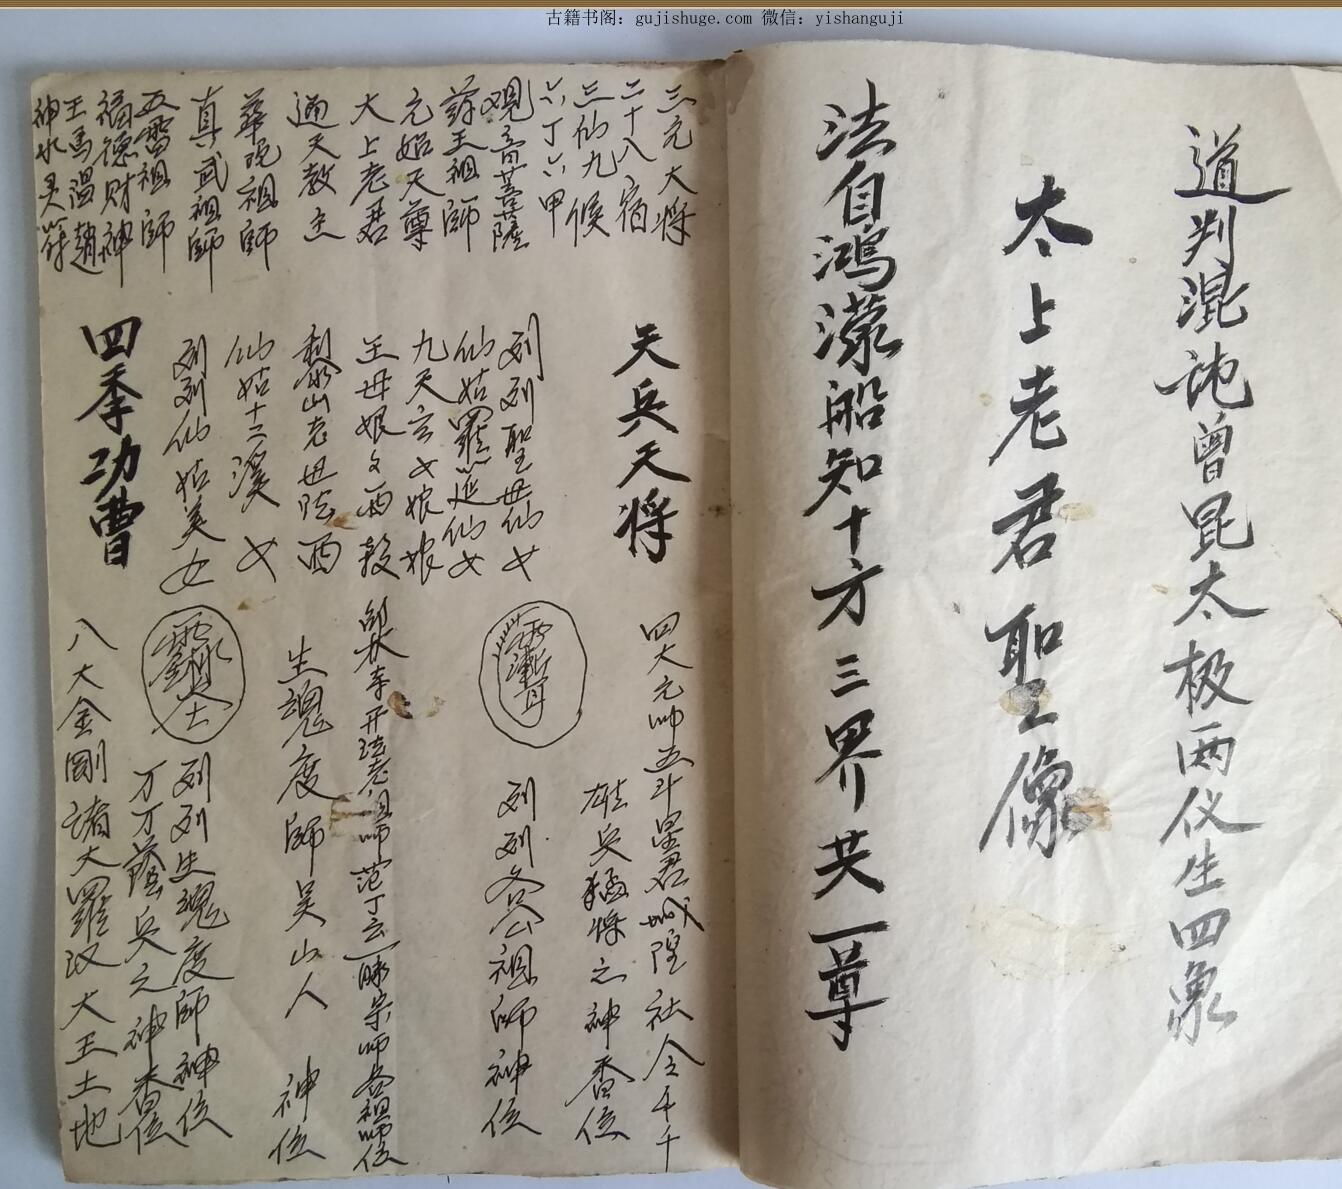 古籍书阁：gujishuge.com 微信：yishanguji
道判混沌曾昆太极两仪生四象
太上老君聖像
法自鴻濛船知十方三界共一尊
三元大将
二十八宿
三仙九候
六丁六甲
观音菩薩
药王祖師
元始天尊
大上老君
通天教主
華光祖師
真武祖師
五雷祖師
福德财神
王馬温趙
神水灵符
天兵天将
列列聖母仙女
仙姑羅延仙女
九天玄女娘娘
王母娘女酒殿
黎山老母陪酒
仙姑十二溪女
列列仙姑美女
四季功曹
四大元帅五斗星君城隍社令千千
雄兵猛将之神香位
列列各公祖师神位
李开法老祖师范丁玄一脉宗师各祖师位
生魂度師吴山人 神位
列列生魂度師神位
万万蔭兵之神香位
八大金剛諸大羅汉大王土地